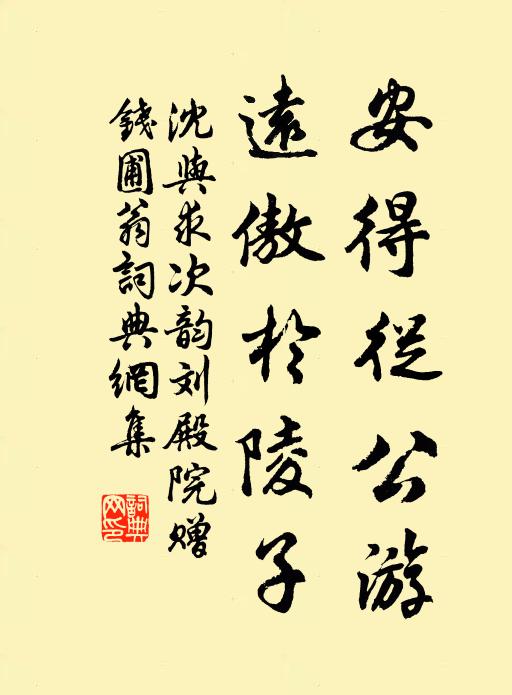 安得従公游
遠傲於陵子
沈與求次韵刘殿院赠
錢圃翁詞典網集
詞典网印